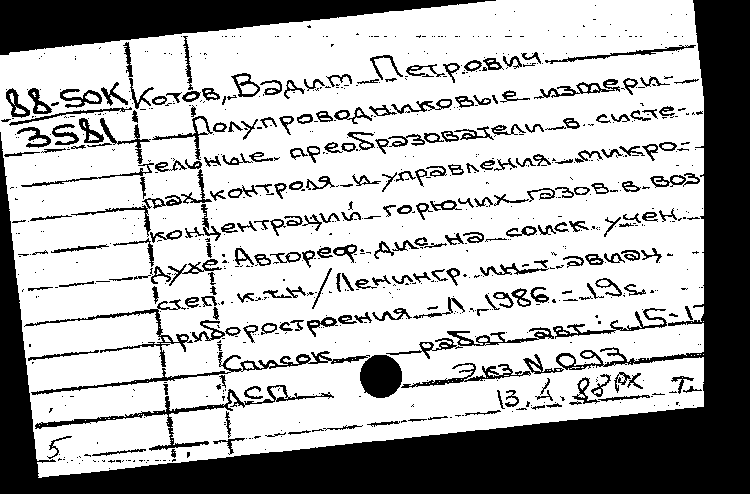 88-50К Котов, Вадим Петрович
3581 Полупроводниковые измери-
тельные преобразователи в систе-
мах контроля и управления микро-
концентраций горючих газов в воз-
духе: Автореф. дис. на соиск. учен.
степ. к.т.н. / Ленингр. ин-т авиац.
приборостроения. - Л., 1986. - 19 с.
Список работ авт.: с. 15-17
ДСП. Экз. N 093
13.4.88 РХ Т.
5